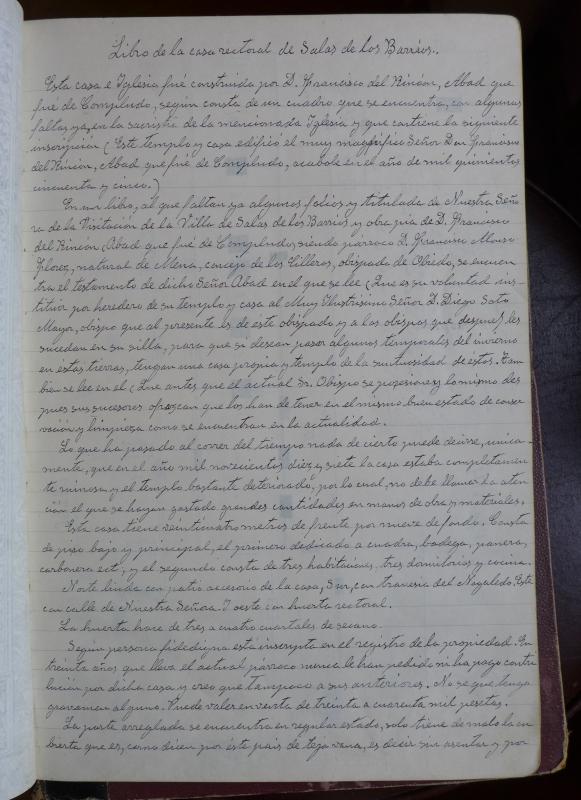 Libro de la casa rectoral de Salas de los Barrios.
Esta casa e Iglesia fué construida por D. Francisco del Rincón, Abad que
fué de Compludo, según consta de un cuadro que se encuentra, con algunas
faltas ya, en la sacristía de la mencionada Iglesia y que contiene la siguiente
inscripción (Este templo y casa edificó el muy magnífico Señor Don Francisco
del Rincón, Abad que fué de Compludo, acabóle en el año de mil quinientos
cincuenta y cinco.)
En un libro, al que faltan ya algunos folios y titulada de Nuestra Seño
ra de la Visitación de la Villa de Salas de los Barrios y obra pía de D. Francisco
del Rincón Abad que fué de Compludo, siendo párroco D. Francisco Alonso
Florez, natural de Mena, concejo de los Cilleros, obispado de Obiedo, se encuen
tra el testamento de dicho Señor Abad en el que se lee (Que es su voluntad ins-
tituir por heredero de su templo y casa al Muy Ilustrísimo Señor D. Diego Soto
Mayor, obispo que al presente es de éste obispado y a los obispos que después les
sucedan en su silla, para que si desean pasar algunos temporales del invierno
en éstas tierras, tengan una casa propia y templo de la suntuosidad de éstos. Tam-
bién se lee en el (Que antes que el actual Sr. Obispo se posesione y lo mismo des
pues sus sucesores ofrezcan que los han de tener en el mismo buen estado de conser
vación y limpieza como se encuentran en la actualidad.
Lo que ha pasado al correr del tiempo nada de cierto puede decirse, unica-
mente, que en el año mil novecientos diez y siete la casa estaba completamen
te ruinosa y el templo bastante deteriorado, por lo cual, no debe llamar la aten-
ción el que se hayan gastado grandes cantidades en manos de obra y materiales.
Esta casa tiene veintiun metros de frente por nueve de fondo. Consta
de piso bajo y principal, el primero dedicado a cuadra, bodega, panera,
carbonera ect, y el segundo consta de tres habitacions, tres dormitorios y cocina.
Norte linda con patio accesorio de la casa, Sur, con travesia del Nogaledo, Este
con calle de Nuestra Señora. Y oeste con huerta rectoral.
La huerta hace de tres a cuatro cuartales de secano.
Según persona fidedigna está inscripta en el registro de la propiedad. En
treinta años que lleva el actual párroco nunca le han pedido ni ha pago contri
bución por dicha casa y creo que tampoco a sus anteriores. No se que tenga
gravamen alguno. Puede valer en venta de treinta a cuarenta mil pesetas.
La parte arreglada se encuentra en regular estado, solo tiene de malo la cu
bierta que es, como dicen por éste país de teja vana, es decir sin asentar y por